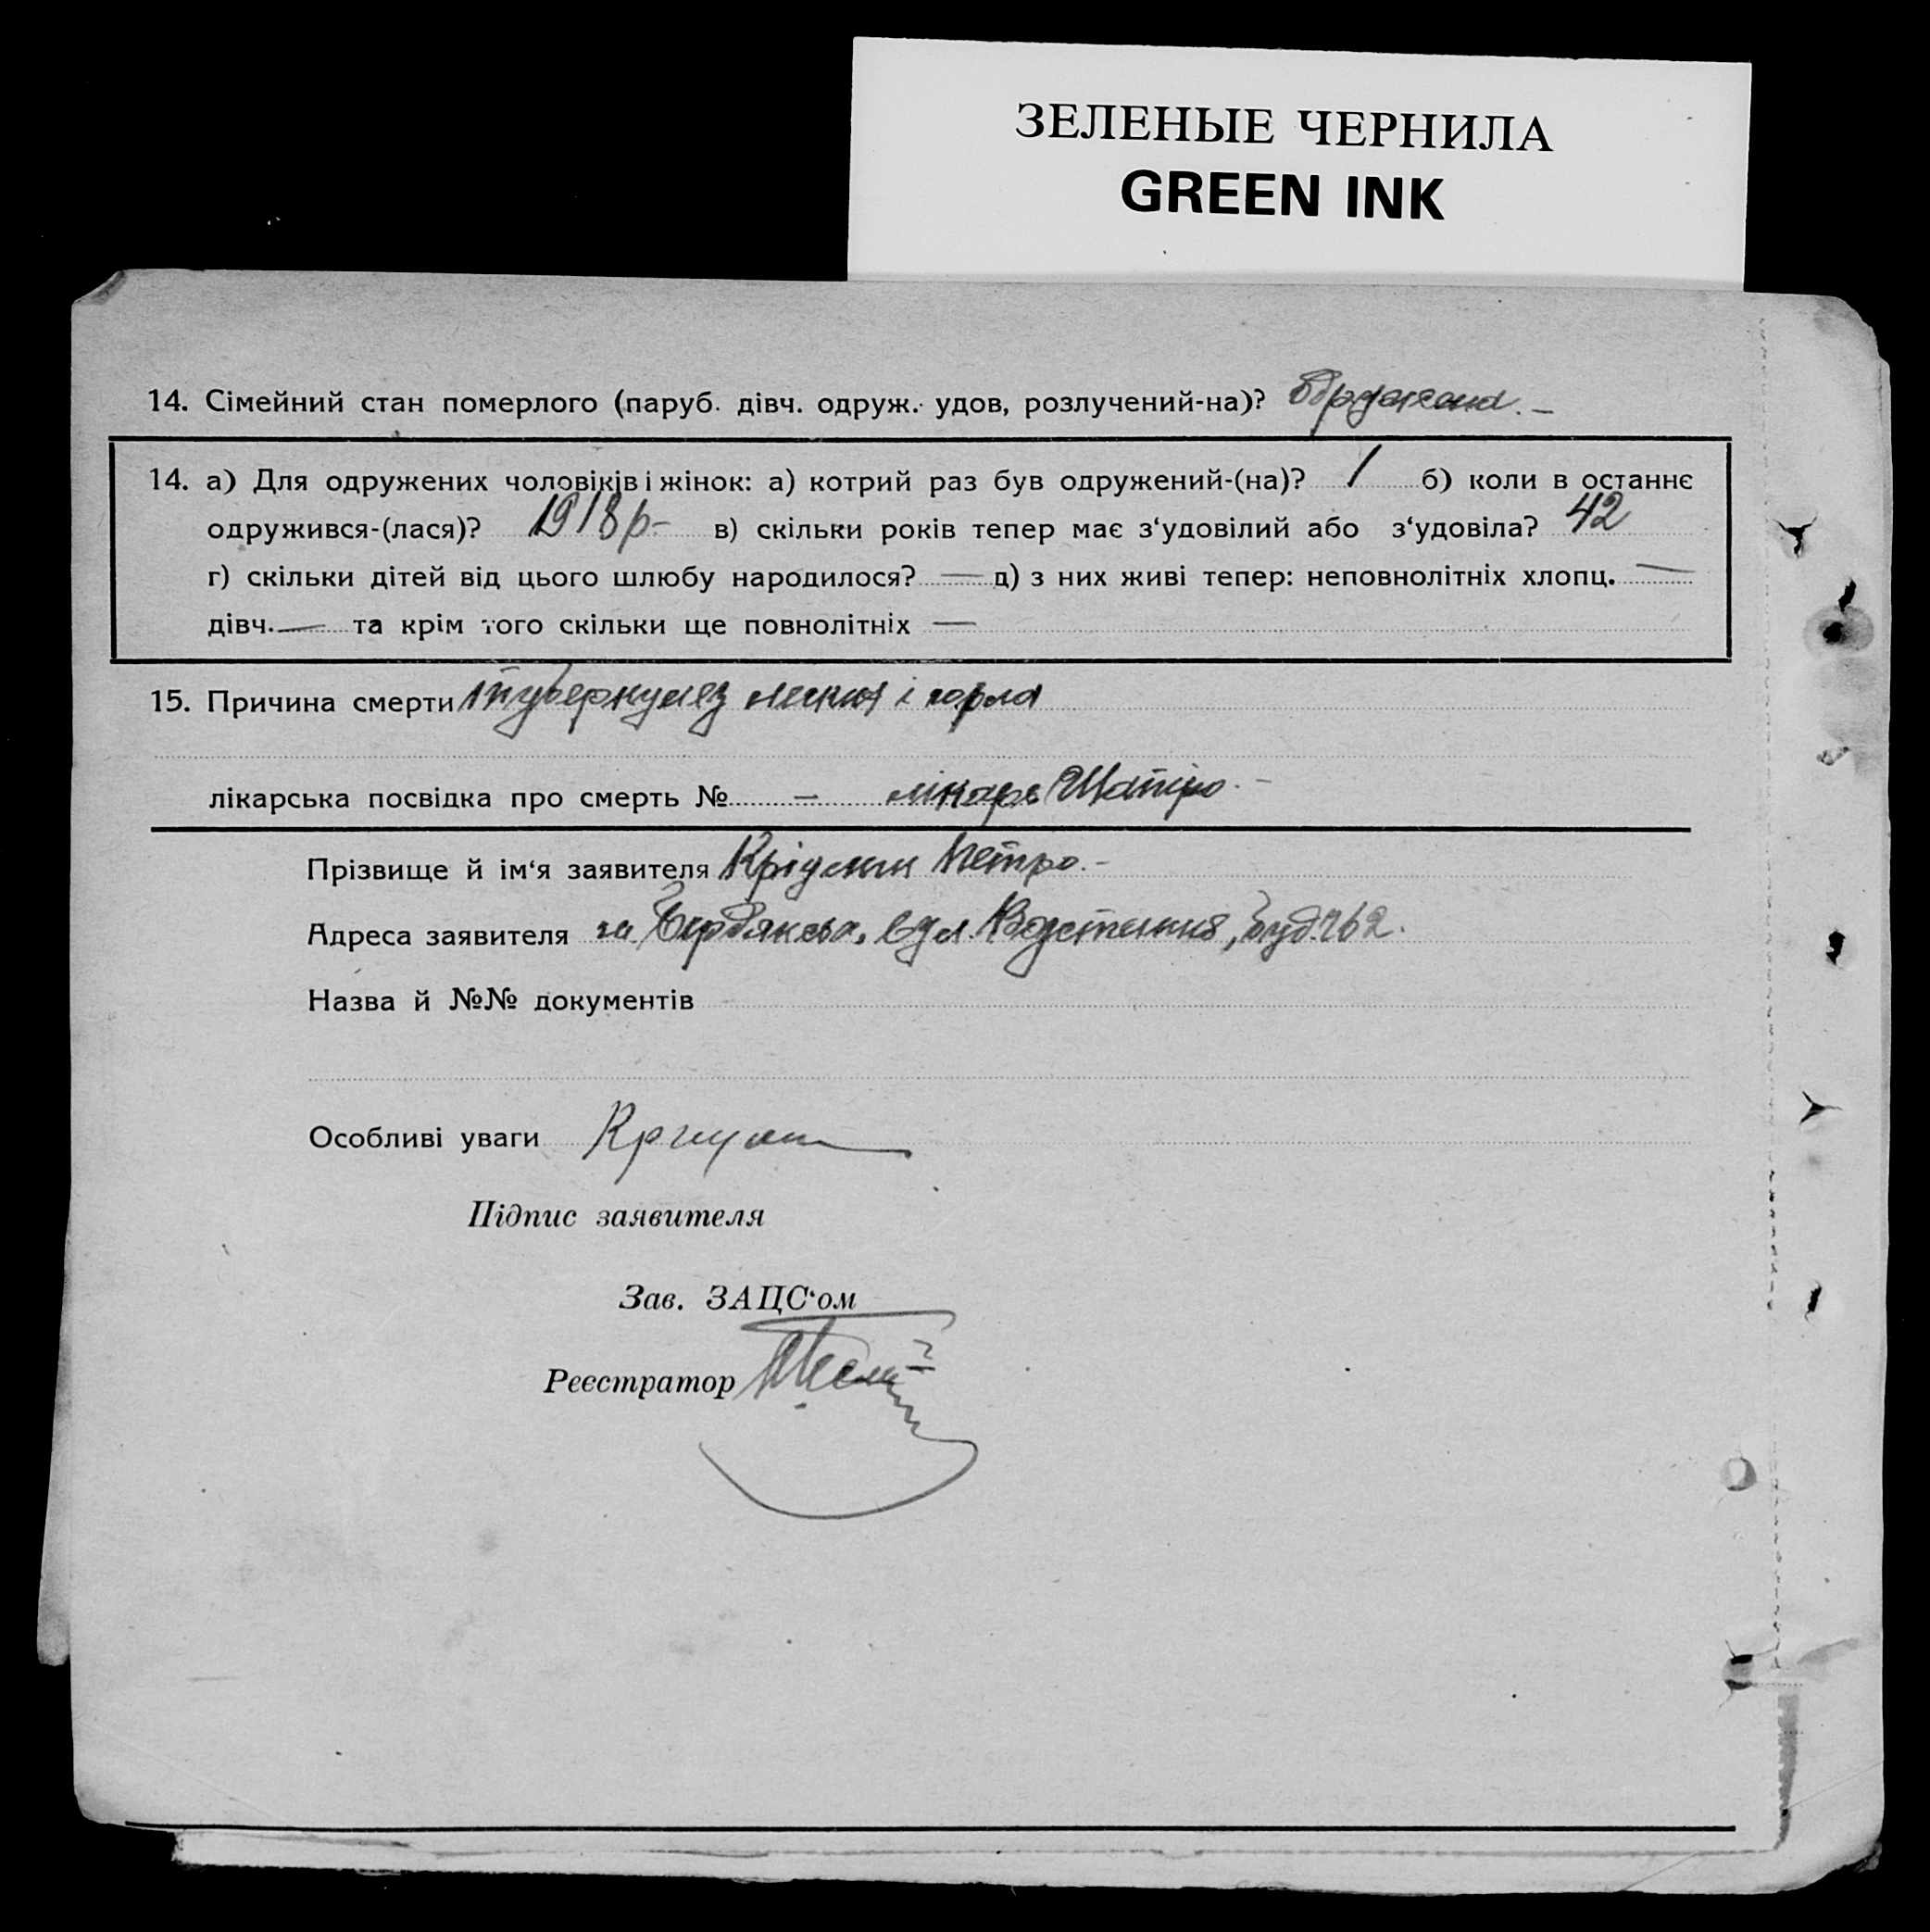 ЗЕЛЕНЫЕ ЧЕРНИЛА
GREEN INK
14. Сімейний стан померлого (паруб. дівч. одруж. удов, розлучений-на)? Одружена. –
14. а) Для одружених чоловіків і жінок: а) котрий раз був одружений-(на)? 1 б) коли в останнє
одружився-(лася)? 1918 р– в) скільки років тепер має з‘удовілий або з‘удовіла? 42
г) скільки дітей від цього шлюбу народилося? — д) з них живі тепер: неповнолітніх хлопц. —
дівч. — та крім того скільки ще повнолітніх —
15. Причина смерти туберкульоз легких і горла
лікарська посвідка про смерть № — лікарь Шапіро. –
Прізвище й ім‘я заявителя Петро. –
Адреса заявителя м. Бердянськ, вул. буд. 262.
Назва й №№ документів
Особливі уваги
Підпис заявителя
Зав. ЗАЦС‘ом
Реєстратор